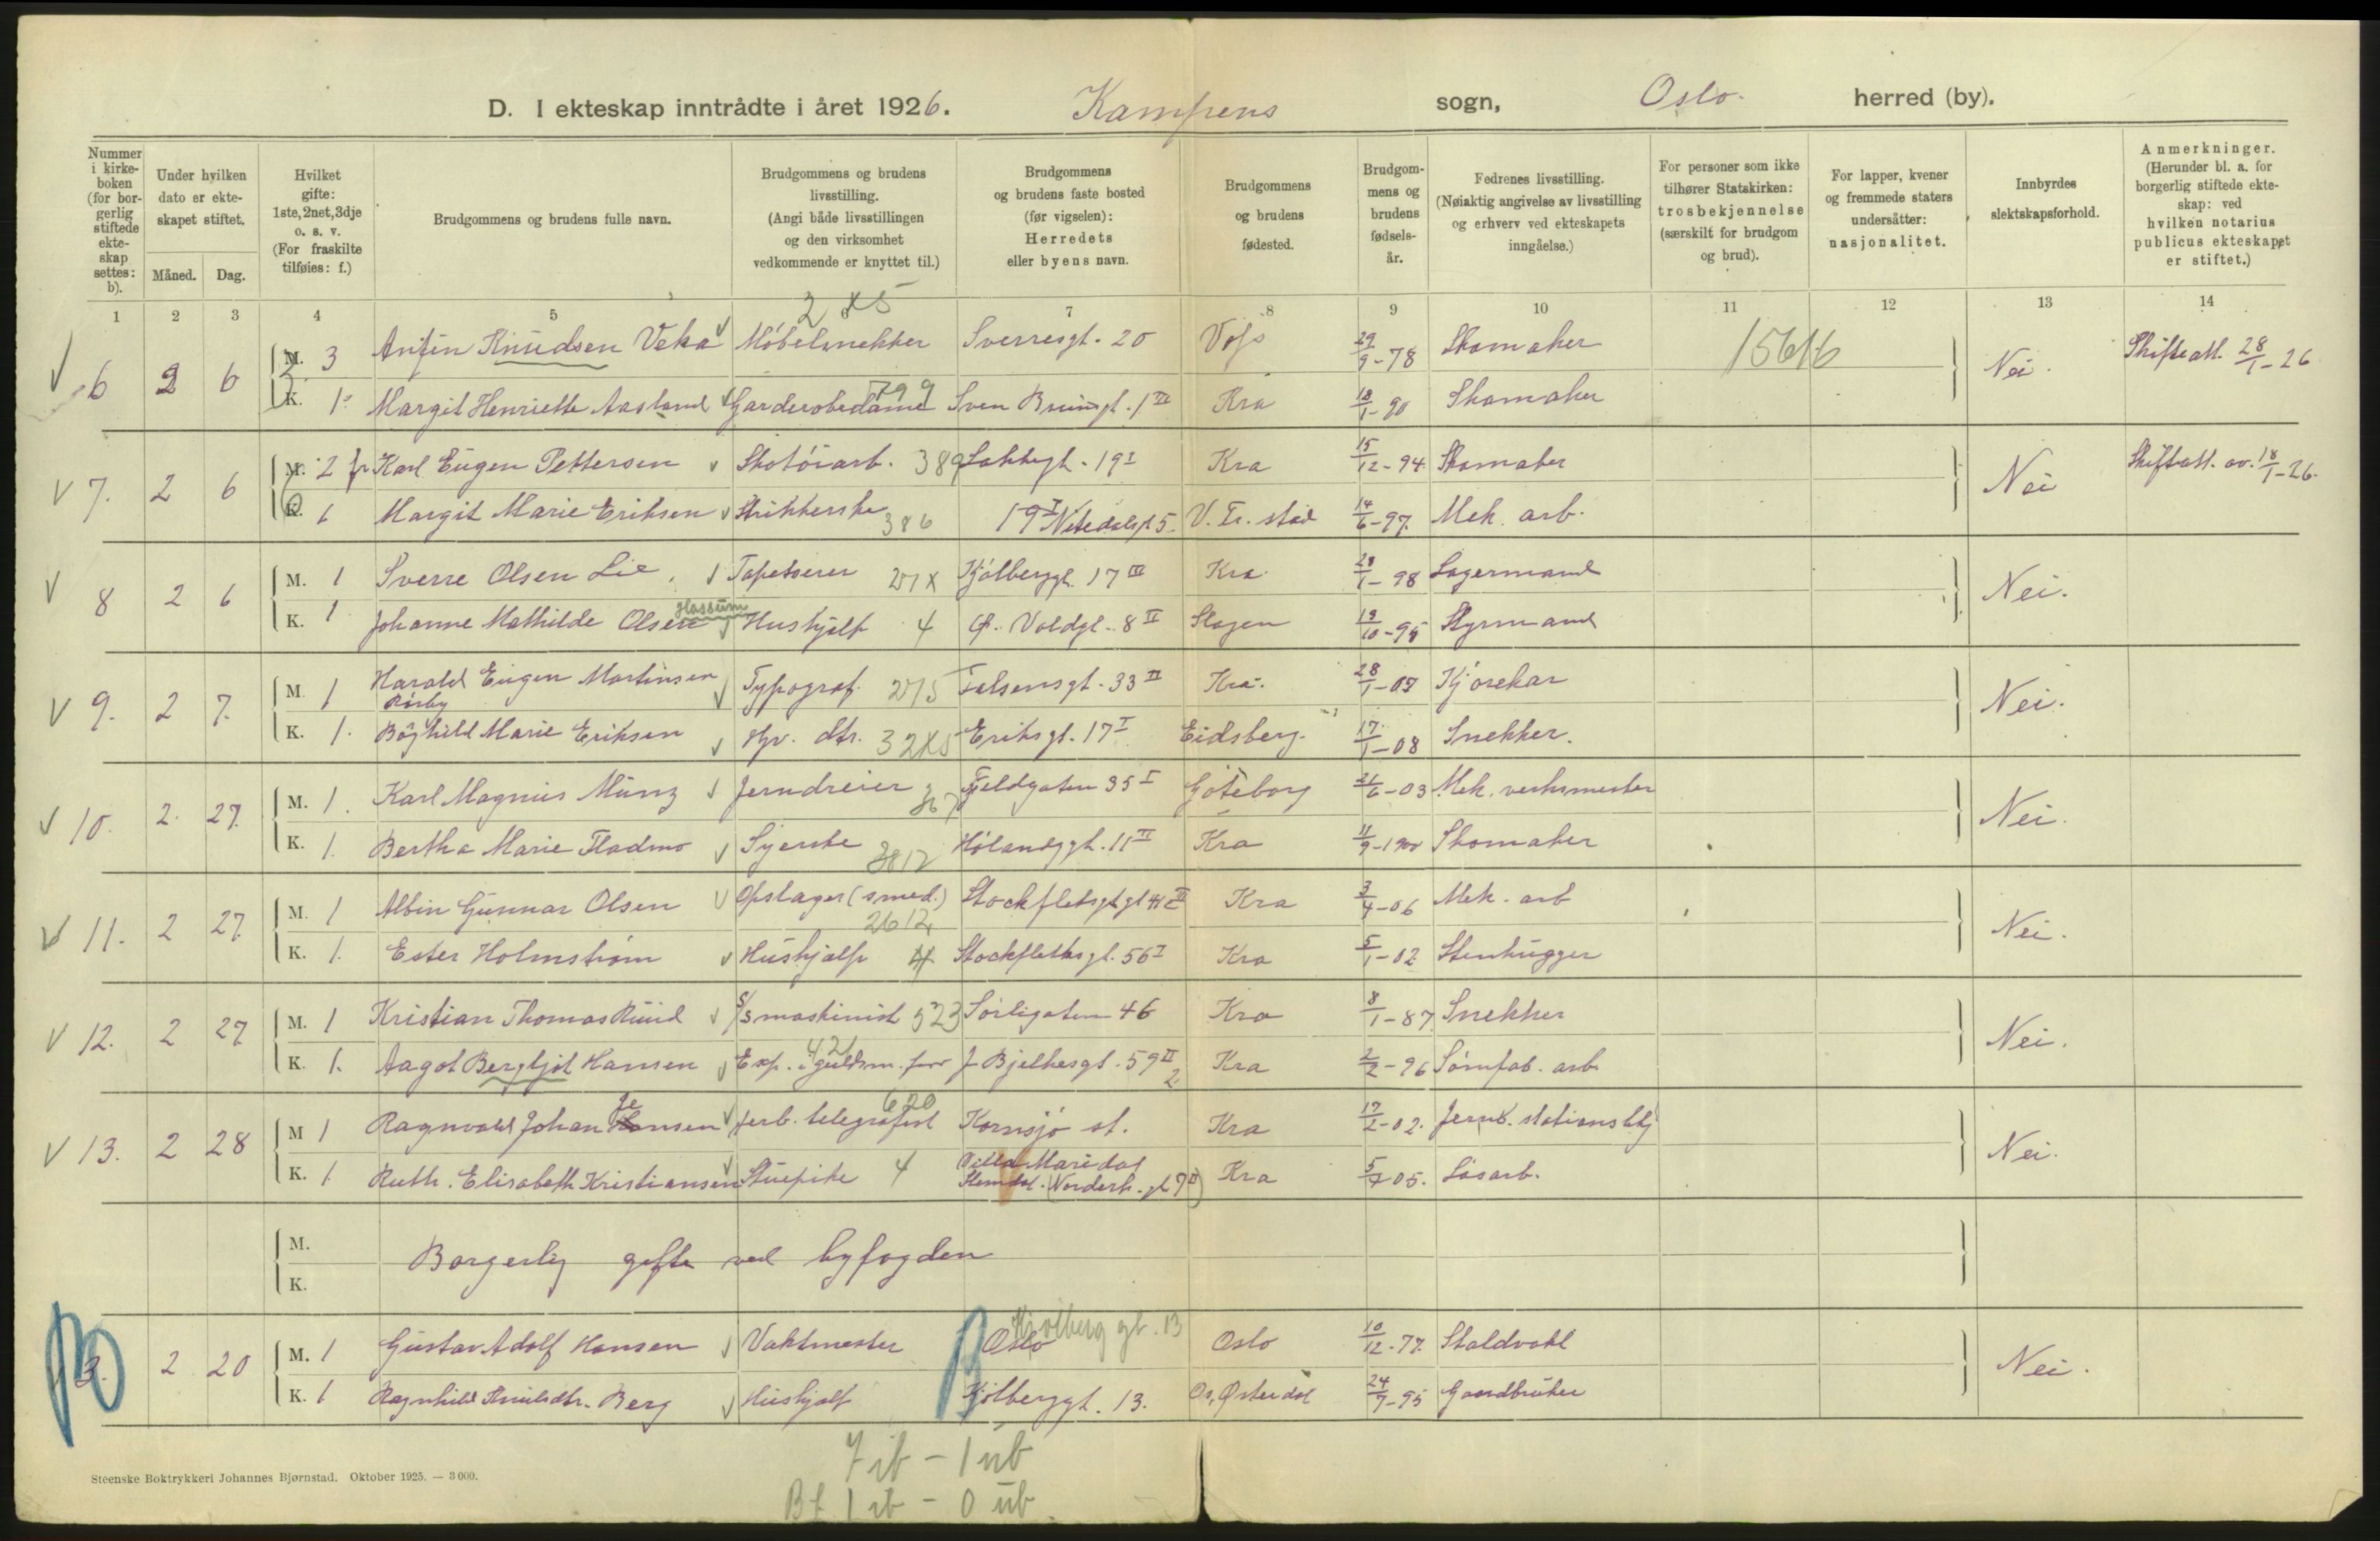 D. I ekteskap inntrådte i året 1926. Kampens sogn, Oslo. herred (by).
Nummer i kirkeboken (for borgerlig stiftede ekteskap settes: b).
Under hvilken dato er ekteskapet stiftet.
Måned. Dag.
Hvilket gifte: 1ste, 2net, 3dje o. s. v. (For fraskilte tilføies: f.)
Brudgommens og brudens fulle navn.
Brudgommens og brudens livsstilling. (Angi både livsstillingen og den virksomhet vedkommende er knyttet til.)
Brudgommens og brudens faste bosted (før vigselen): Herredets eller byens navn.
Brudgommens og brudens fødested.
Brudgommens og brudens fødselsår.
Fedrenes livsstilling. (Nøiaktig angivelse av livsstilling og erhverv ved ekteskapets inngåelse.)
For personer som ikke tilhører Statskirken: trosbekjennelse (særskilt for brudgom og brud).
For lapper, kvener og fremmede staters undersåtter: nasjonalitet.
Innbyrdes slektskapsforhold.
Anmerkninger. (Herunder bl. a. for borgerlig stiftede ekteskap: ved hvilken notarius publicus ekteskapet er stiftet.)
1 2 3 4 5 6 7 8 9 10 11 12 13 14
2 X5
6 2 6 M. 3 Anfin Knudsen Veka Møbelsnekker Sverresgt. 20 Voss 29/9-78 Skomaker 15616 Nei. Skifteatt. 28/1-26
K. 1 Margit Henriette Aasland Garderobedame 799 Sven Bruunsgt. 1 III Kra 18/1-90 Skomaker
7. 2 6 M. 2 f Karl Eugen Pettersen Skotøiarb. 389 Lakkegt. 19 I Kra 15/12-94. Skomaker Nei Skifteatt. av. 18/1-26.
K. 1 Margit Marie Eriksen Strikkerske 386 19 I Nitedalsgt 5. V. Fr. stad 14/6-97. Mek. arb.
8 2 6 M. 1 Sverre Olsen Lie Tapetserer 271X Kjølberggt. 17 III Kra. 28/1-98 Lagermand Nei.
K. 1 Johanne Mathilde Olsen Hassum Hushjelp 4 Ø. Voldgt. 8 II Slagen 13/10-95 Styrmand
9. 2 7. M. 1 Harald Eugen Martinsen Rørby Typograf. 275 Falsensgt. 33 II Kra. 28/1-07 Kjørekar Nei.
K. 1. Böghild Marie Eriksen Hjv. dtr. 32X5 Eriksgt. 17 I Eidsberg. 17/1-08 Snekker.
10. 2. 27. M. 1. Karl Magnus Münz Jerndreier 367 Fjeldgaten 35 I Göteborg 21/6-03 Mek. verksmester Nei.
K. 1. Bertha Marie Fladmo Syerske 3812 Hølandsgt. 11 II Kra 11/9-1900 Skomaker
11. 2 27. M. 1 Albin Gunnar Olsen Opslager (smed.) 2612 Stockfletsgt 41 c III Kra 3/4-06 Mek. arb Nei.
K. 1. Ester Holmstrøm Hushjælp 4 Stockflethsgt. 56 I Kra 5/1-02 Stenhugger
12. 2 27 M. 1 Kristian Thomas Ruud S/S maskinist 523 Sörligaten 46 Kra 8/1-87 Snekker Nei.
K. 1. Aagot Bergljot Hansen Exp. i guldsm. forr 421 J. Bjelkesgt. 59 II 2 Kra 2/2-96 Sømfab. arb.
13. 2 28 M 1 Ragnvald Johan Jensen Jerb. telegrafist 620 Kornsjö st. Kra 17/2-02. Jernb. stationsbtj Nei.
K. 1. Ruth. Elisabeth Kristiansen Stuepike 4 Villa Maridal Slemdal. (Norderh. gt 7 II) Kra 5/7 05. Løsarb.
M.
Borgerlig gifte ved byfogden
K.
3. 2 20 M. 1 Gustav Adolf Hansen Vaktmester Oslo Kjølberg gt. 13 Oslo 10/12-77. Staldvakt Nei.
K. 1 Ragnhild Knutsdtr. Berg Hushjelp Kjølberggt. 13. Os, Østerdal 24/9-95 Gaardbruker
7 ib - 1 ub
Bf 1 ib - 0 ub
Steenske Boktrykkeri Johannes Bjørnstad. Oktober 1925. — 3000.